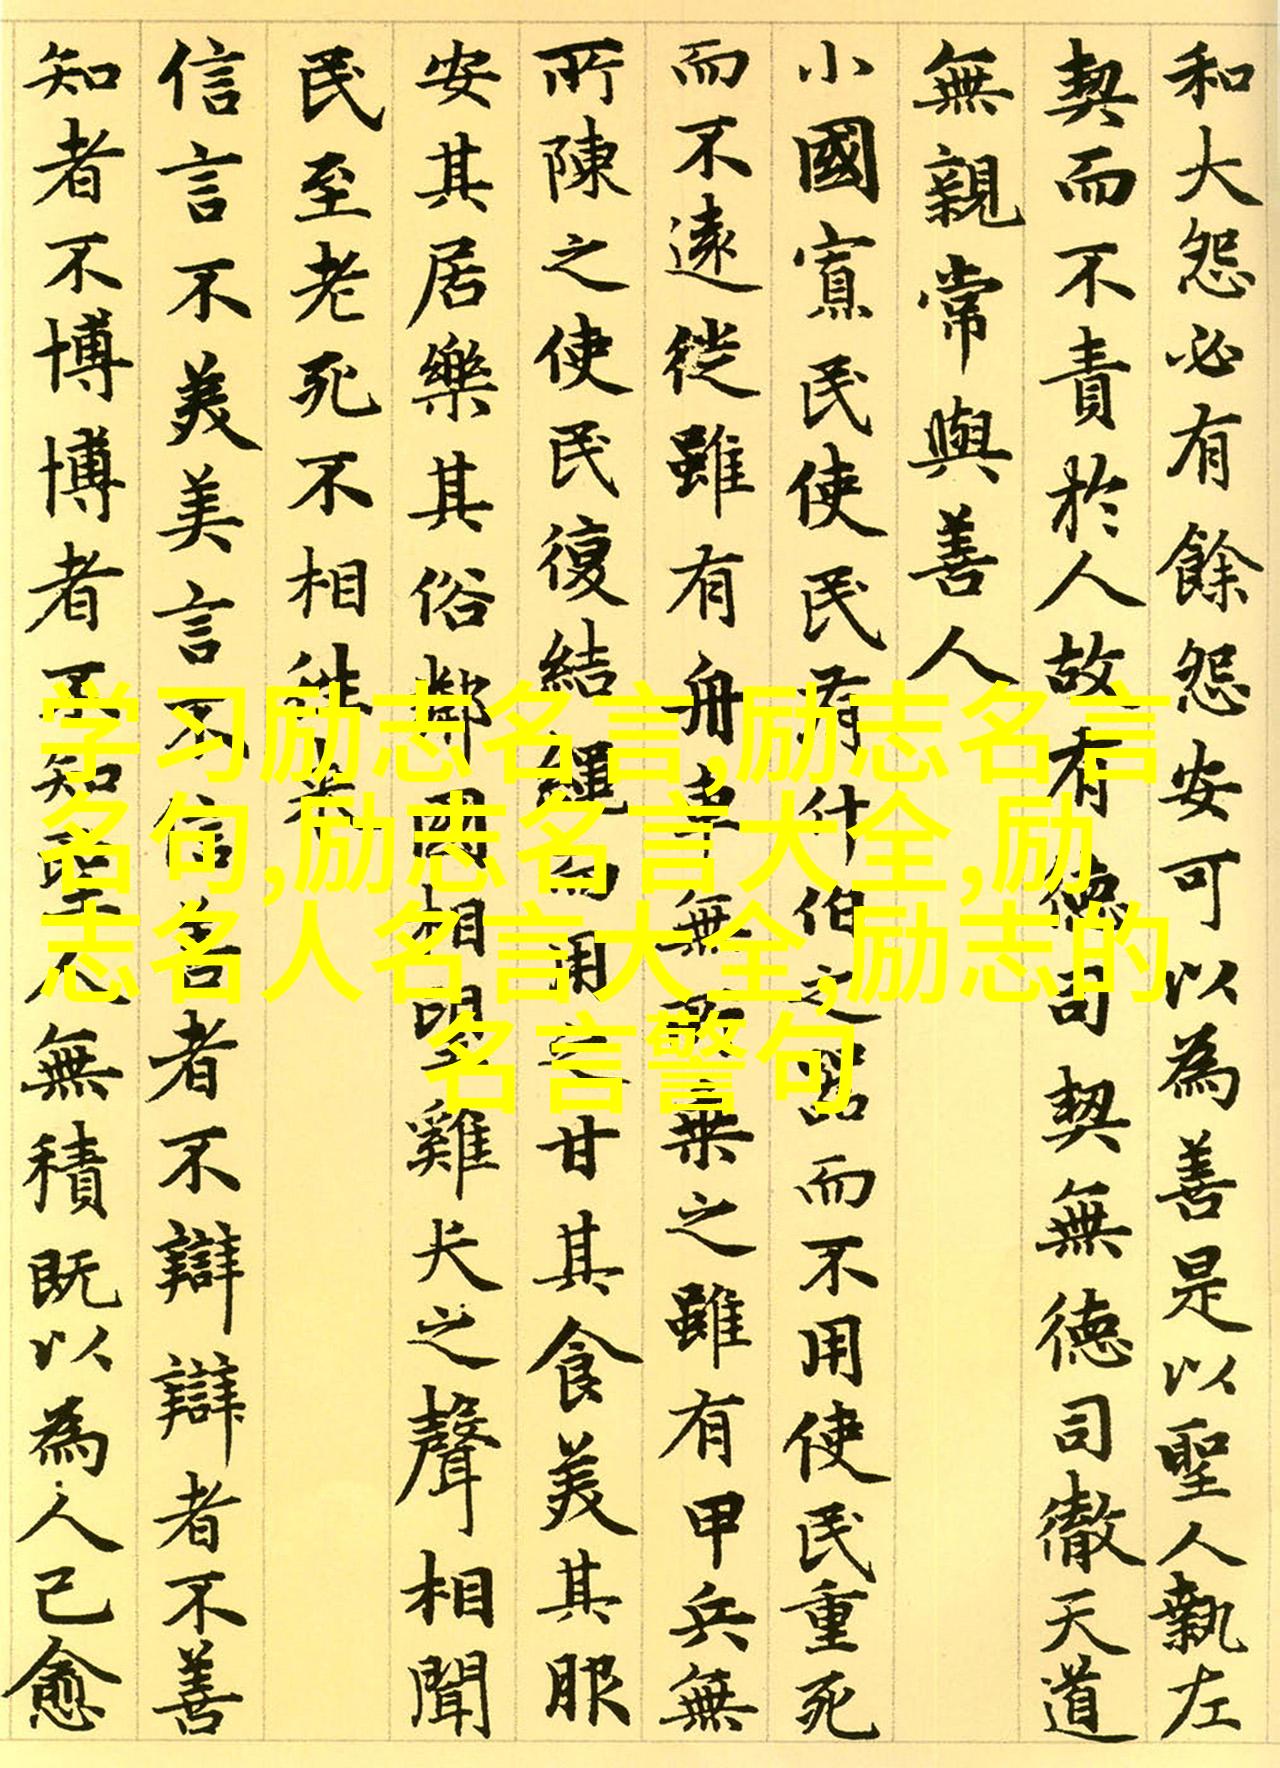 和大怨必有餘怨安可以為善是以聖人執左
契而不責於人故有德司契無德司徹天道
無親常與善人
小國寡民使民有什伯之器而不用使民重死
而不遠徙雖有舟車無所乗之雖有甲兵無
所陳之使民復結繩而用之甘其食美其服
安其居樂其俗鄰國相望雞犬之聲相聞
民至老死不相往來
信言不美美言不信善者不辯辯者不善
知者不博博者不知聖人無積既以為人己愈
学习励志名言,励志名言
名句,励志名言大全,励
志名人名言大全,励志的
名言警句